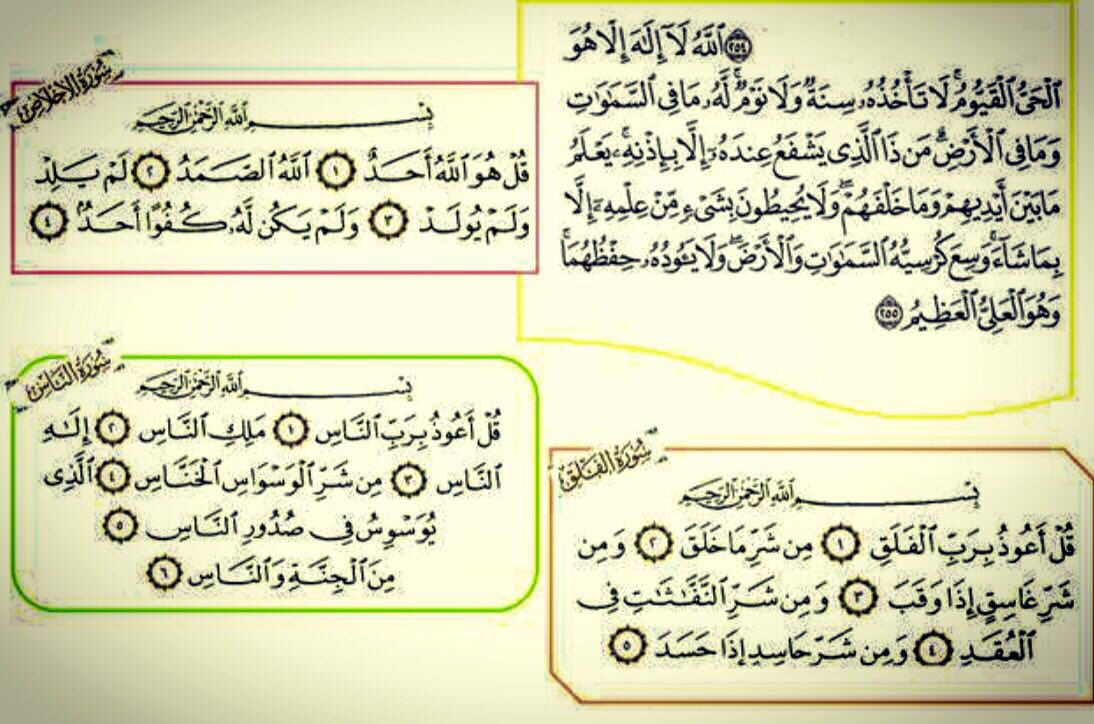 ﴿٢٥٤﴾ ٱللَّهُ لَآ إِلَٰهَ إِلَّا هُوَ
ٱلْحَىُّ ٱلْقَيُّومُ ۚ لَا تَأْخُذُهُۥ سِنَةٌ وَلَا نَوْمٌ ۚ لَّهُۥ مَا فِى ٱلسَّمَٰوَٰتِ
وَمَا فِى ٱلْأَرْضِ ۗ مَن ذَا ٱلَّذِى يَشْفَعُ عِندَهُۥٓ إِلَّا بِإِذْنِهِۦ ۚ يَعْلَمُ
مَا بَيْنَ أَيْدِيهِمْ وَمَا خَلْفَهُمْ ۖ وَلَا يُحِيطُونَ بِشَىْءٍ مِّنْ عِلْمِهِۦٓ إِلَّا
بِمَا شَآءَ ۚ وَسِعَ كُرْسِيُّهُ ٱلسَّمَٰوَٰتِ وَٱلْأَرْضَ ۖ وَلَا يَـُٔودُهُۥ حِفْظُهُمَا ۚ
وَهُوَ ٱلْعَلِىُّ ٱلْعَظِيمُ ﴿٢٥٥﴾
سُورَةُ الإِخْلَاصِ
بِسْمِ ٱللَّهِ ٱلرَّحْمَٰنِ ٱلرَّحِيمِ
قُلْ هُوَ ٱللَّهُ أَحَدٌ ١ ٱللَّهُ ٱلصَّمَدُ ٢ لَمْ يَلِدْ
وَلَمْ يُولَدْ ٣ وَلَمْ يَكُن لَّهُۥ كُفُوًا أَحَدٌۢ ٤
سُورَةُ النَّاسِ
بِسْمِ ٱللَّهِ ٱلرَّحْمَٰنِ ٱلرَّحِيمِ
قُلْ أَعُوذُ بِرَبِّ ٱلنَّاسِ ١ مَلِكِ ٱلنَّاسِ ٢ إِلَٰهِ
ٱلنَّاسِ ٣ مِن شَرِّ ٱلْوَسْوَاسِ ٱلْخَنَّاسِ ٤ ٱلَّذِى
يُوَسْوِسُ فِى صُدُورِ ٱلنَّاسِ ٥
مِنَ ٱلْجِنَّةِ وَٱلنَّاسِ ٦
سُورَةُ الفَلَقِ
بِسْمِ ٱللَّهِ ٱلرَّحْمَٰنِ ٱلرَّحِيمِ
قُلْ أَعُوذُ بِرَبِّ ٱلْفَلَقِ ١ مِن شَرِّ مَا خَلَقَ ٢ وَمِن
شَرِّ غَاسِقٍ إِذَا وَقَبَ ٣ وَمِن شَرِّ ٱلنَّفَّٰثَٰتِ فِى
ٱلْعُقَدِ ٤ وَمِن شَرِّ حَاسِدٍ إِذَا حَسَدَ ٥